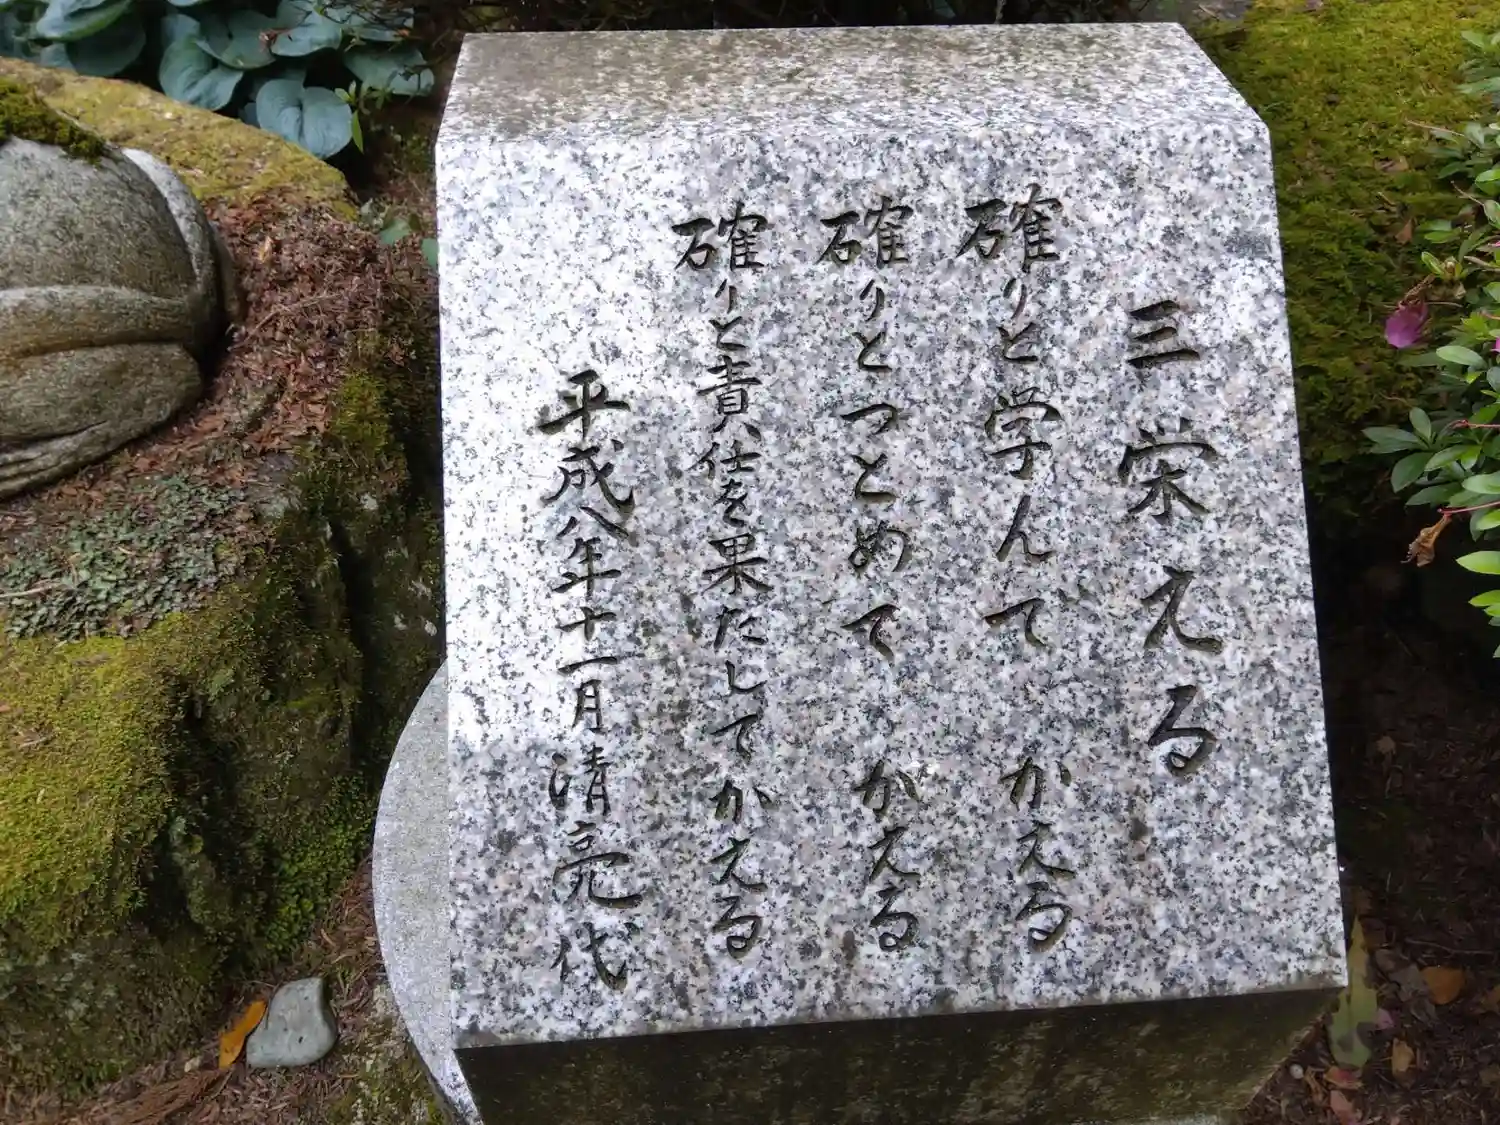 三栄える
確りと学んで かえる
確りとつとめて がえる
確りと責任を果たして かえる
平成八年十一月 清亮代